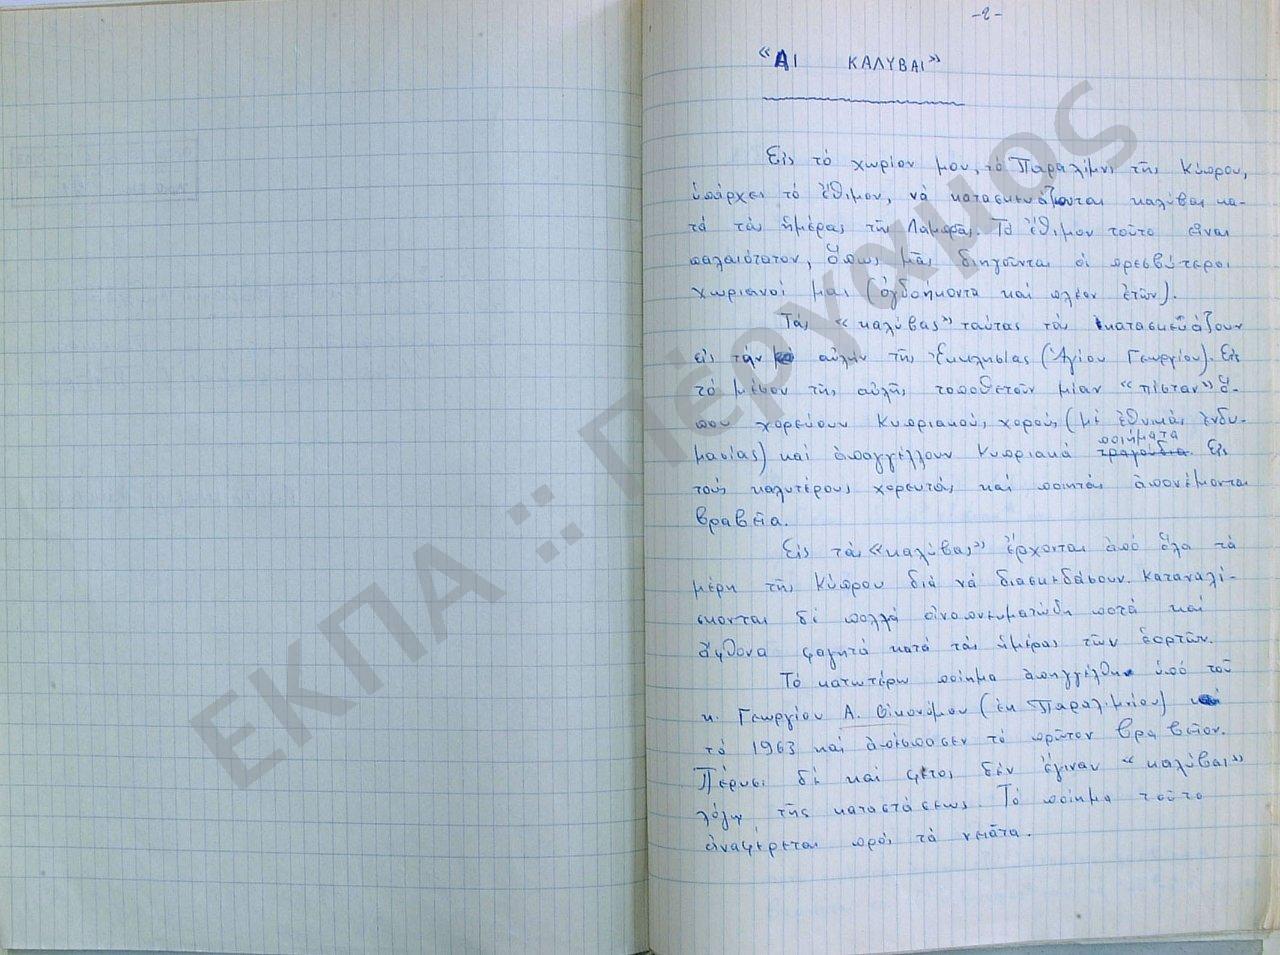 -2-
«ΑΙ ΚΑΛΥΒΑΙ»
Εἰς τό χωρίον μου, τό Παραλίμνι τῆς Κύπρου,
ὑπάρχει τό ἔθιμον, νά κατασκευάζωνται καλύβαι κα-
τά τάς ἡμέρας τῆς Λαμπρᾶς. Τό ἔθιμον τοῦτο εἶναι
παλαιότατον, ὅπως μᾶς διηγοῦνται οἱ πρεσβύτεροι
χωριανοί μας (ὀγδοήκοντα καί πλέον ἐτῶν).
Τάς «καλύβας» ταύτας τάς κατασκευάζουν
εἰς τήν αὐλήν τῆς Ἐκκλησίας (Ἁγίου Γεωργίου). Εἰς
τό μέσον τῆς αὐλῆς τοποθετοῦν μίαν «πίσταν» ὅ-
που χορεύουν Κυπριακούς χορούς (μέ ἐθνικάς ἐνδυ-
μασίας) καί ἀπαγγέλλουν Κυπριακά ποιήματα τραγούδια. Εἰς
τούς καλυτέρους χορευτάς καί ποιητάς ἀπονέμονται
βραβεῖα.
Εἰς τάς «καλύβας» ἔρχονται ἀπό ὅλα τά
μέρη τῆς Κύπρου διά νά διασκεδάσουν. Καταναλί-
σκονται δέ πολλά οἰνοπνευματώδη ποτά καί
ἄφθονα φαγητά κατά τάς ἡμέρας τῶν ἑορτῶν.
Τό κατωτέρω ποίημα ἀπηγγέλθη ὑπό τοῦ
κ. Γεωργίου Α. Οἰκονόμου (ἐκ Παραλιμνίου)
τό 1963 καί ἀπέσπασεν τό πρῶτον βραβεῖον.
Πέρυσι δέ καί φέτος δέν ἔγιναν «καλύβαι»
λόγῳ τῆς καταστάσεως. Τό ποίημα τοῦτο
ἀναφέρεται πρός τά νειᾶτα.
ΕΚΠΑ :: Πέργαμος